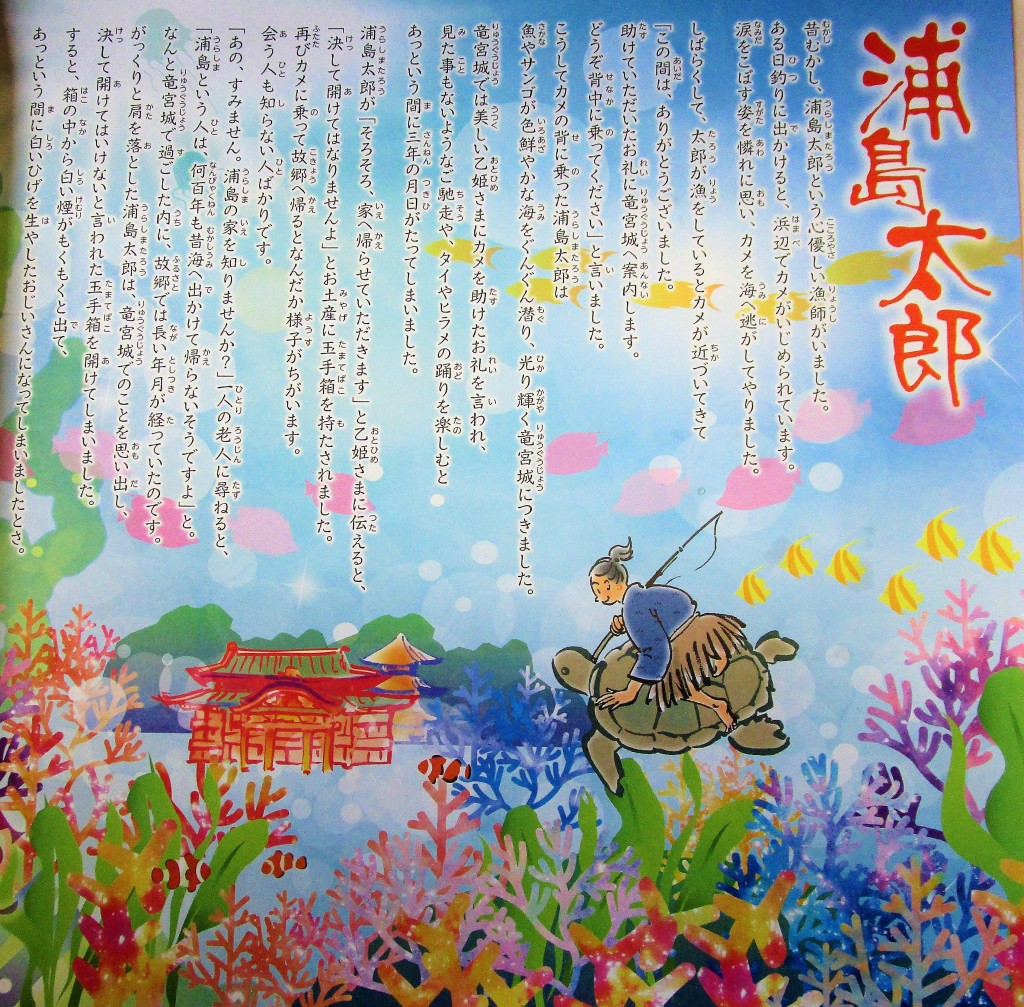 浦島太郎
昔むかし、浦島太郎という心優しい漁師がいました。
ある日釣りに出かけると、浜辺でカメがいじめられています。
涙をこぼす姿を憐れに思い、カメを海へ逃がしてやりました。
しばらくして、太郎が漁をしているとカメが近づいてきて
「この間は、ありがとうございました。
助けていただいたお礼に竜宮城へ案内します。
どうぞ背中に乗ってください」と言いました。
こうしてカメの背に乗った浦島太郎は
魚やサンゴが色鮮やかな海をぐんぐん潜り、光り輝く竜宮城につきました。
竜宮城では美しい乙姫さまにカメを助けたお礼を言われ、
見た事もないようなご馳走や、タイやヒラメの踊りを楽しむと
あっという間に三年の月日がたってしまいました。
浦島太郎が「そろそろ、家へ帰らせていただきます」と乙姫さまに伝えると、
「決して開けてはなりませんよ」とお土産に玉手箱を持たされました。
再びカメに乗って故郷へ帰るとなんだか様子がちがいます。
会う人も知らない人ばかりです。
「あの、すみません。浦島の家を知りませんか?」一人の老人に尋ねると、
「浦島という人は、何百年も昔海へ出かけて帰らないそうですよ」と。
なんと竜宮城で過ごした内に、故郷では長い年月が経っていたのです。
がっくりと肩を落とした浦島太郎は、竜宮城でのことを思い出し、
決して開けてはいけないと言われた玉手箱を開けてしまいました。
すると、箱の中から白い煙がもくもくと出て、
あっという間に白いひげを生やしたおじいさんになってしまいましたとさ。